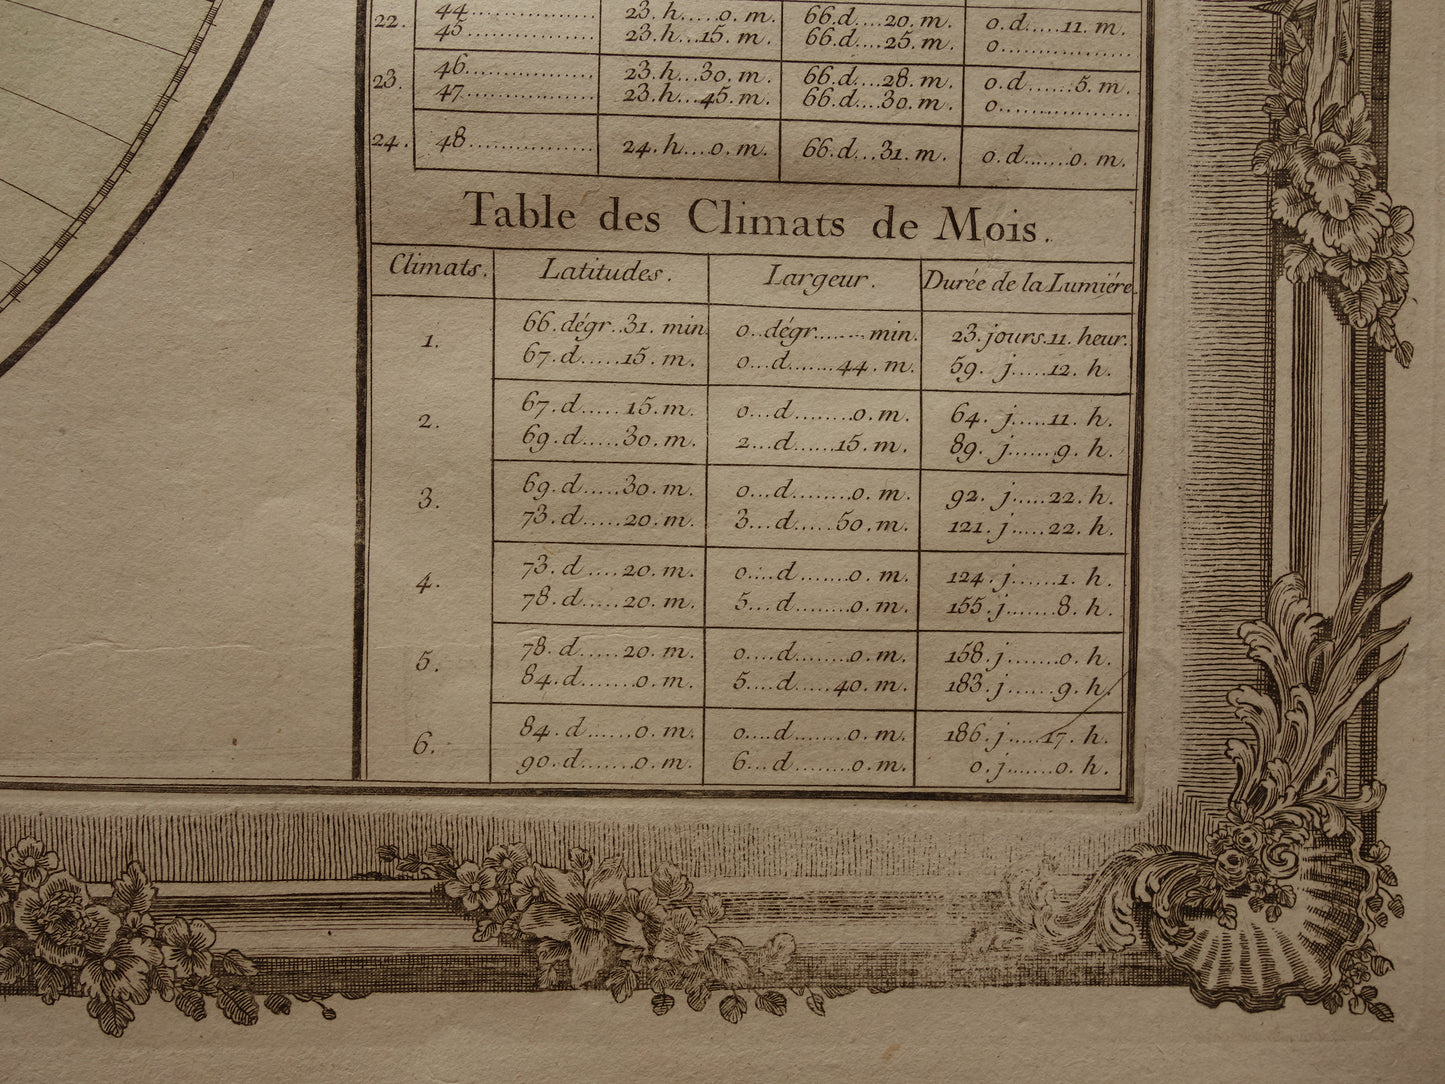 22. 44................ 23.h.....0. m. 66.d....20. m. 0.d.....11. m.
45................ 23.h...15. m. 66.d....25. m. 0................
23. 46................ 23.h...30. m. 66.d...28. m. 0.d......5. m.
47................ 23.h...45. m. 66.d...30. m. 0................
24. 48................ 24.h....0. m. 66.d...31. m. 0.d......0. m.
Table des Climats de Mois.
Climats. Latitudes. Largeur. Durée de la Lumiére.
1. 66.dégr..31. min. 0..dégr.......min. 23.jours.11. heur.
67.d.....15. m. 0...d.......44. m. 59. j.....12. h.
2. 67.d.....15. m. 0...d........0. m. 64. j.....11. h.
69.d.....30. m. 2...d......15. m. 89. j......9. h.
3. 69.d.....30. m. 0...d........0. m. 92. j.....22. h.
73.d.....20. m. 3...d.....50. m. 121. j.....22. h.
4. 73.d.....20. m. 0....d.......0. m. 124. j......1. h.
78.d.....20. m. 5...d........0. m. 155. j.......8. h.
5. 78.d.....20. m. 0....d........0. m. 158. j.......0. h.
84.d.......0. m. 5....d.....40. m. 183. j......9. h.
6. 84.d......0. m. 0....d........0. m. 186. j.....17. h.
90.d.......0. m. 6...d........0. m. 0. j.......0. h.